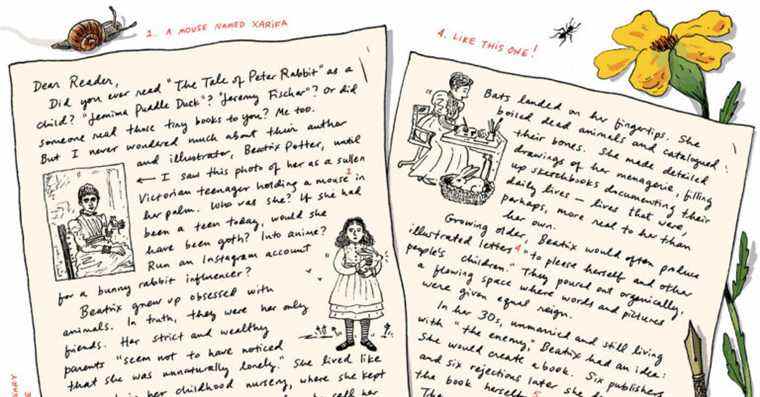 2. A MOUSE NAMED XARIFA
Dear Reader,
Did you ever read "The Tale of Peter Rabbit" as a
child? "Jemima Puddle Duck"? "Jeremy Fischer"? Or did
someone read those tiny books to you? Me too.
But I never wondered much about their author
and illustrator, Beatrix Potter, until
← I saw this photo of her as a sullen
Victorian teenager holding a mouse² in
her palm. Who was she? If she had
been a teen today, would she
have been goth? Into anime?
Run an Instagram account
for a bunny rabbit influencer?
Beatrix grew up obsessed with
animals. In truth, they were her only
friends. Her strict and wealthy
parents "seem not to have noticed
that she was unnaturally lonely." She lived like
in her childhood nursery, where she kept
call her
4. LIKE THIS ONE!
Bats landed on her fingertips. She
boiled dead animals and catalogued
their bones. She made detailed
drawings of her menagerie, filling
up sketchbooks documenting their
daily lives — lives that were,
perhaps, more real to her than
her own.
Growing older, Beatrix would often produce
illustrated letters⁴ "to please herself and other
people's children." They poured out organically,
a flowing space where words and pictures
were given equal reign.
In her 30s, unmarried and still living
with "the enemy," Beatrix had an idea:
She would create a book. Six publishers
and six rejections later she
the book herself.⁵